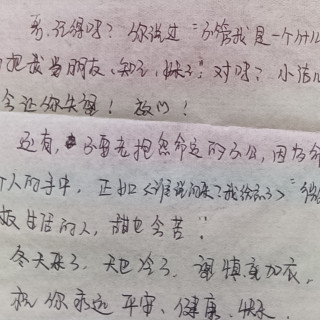 哥,记得吗?你说过"不管我是一个什么
把我当朋友、知己、妹子",对吗?小
会让你失望!放心!
还有,不要老抱怨命运的不公,因为命
个人的手中,正如<谁说的来?我给忘了>"
生活的人,甜也会苦"。
冬天来了,天也冷了,请慎重加衣,
祝你永远平安、健康、快乐